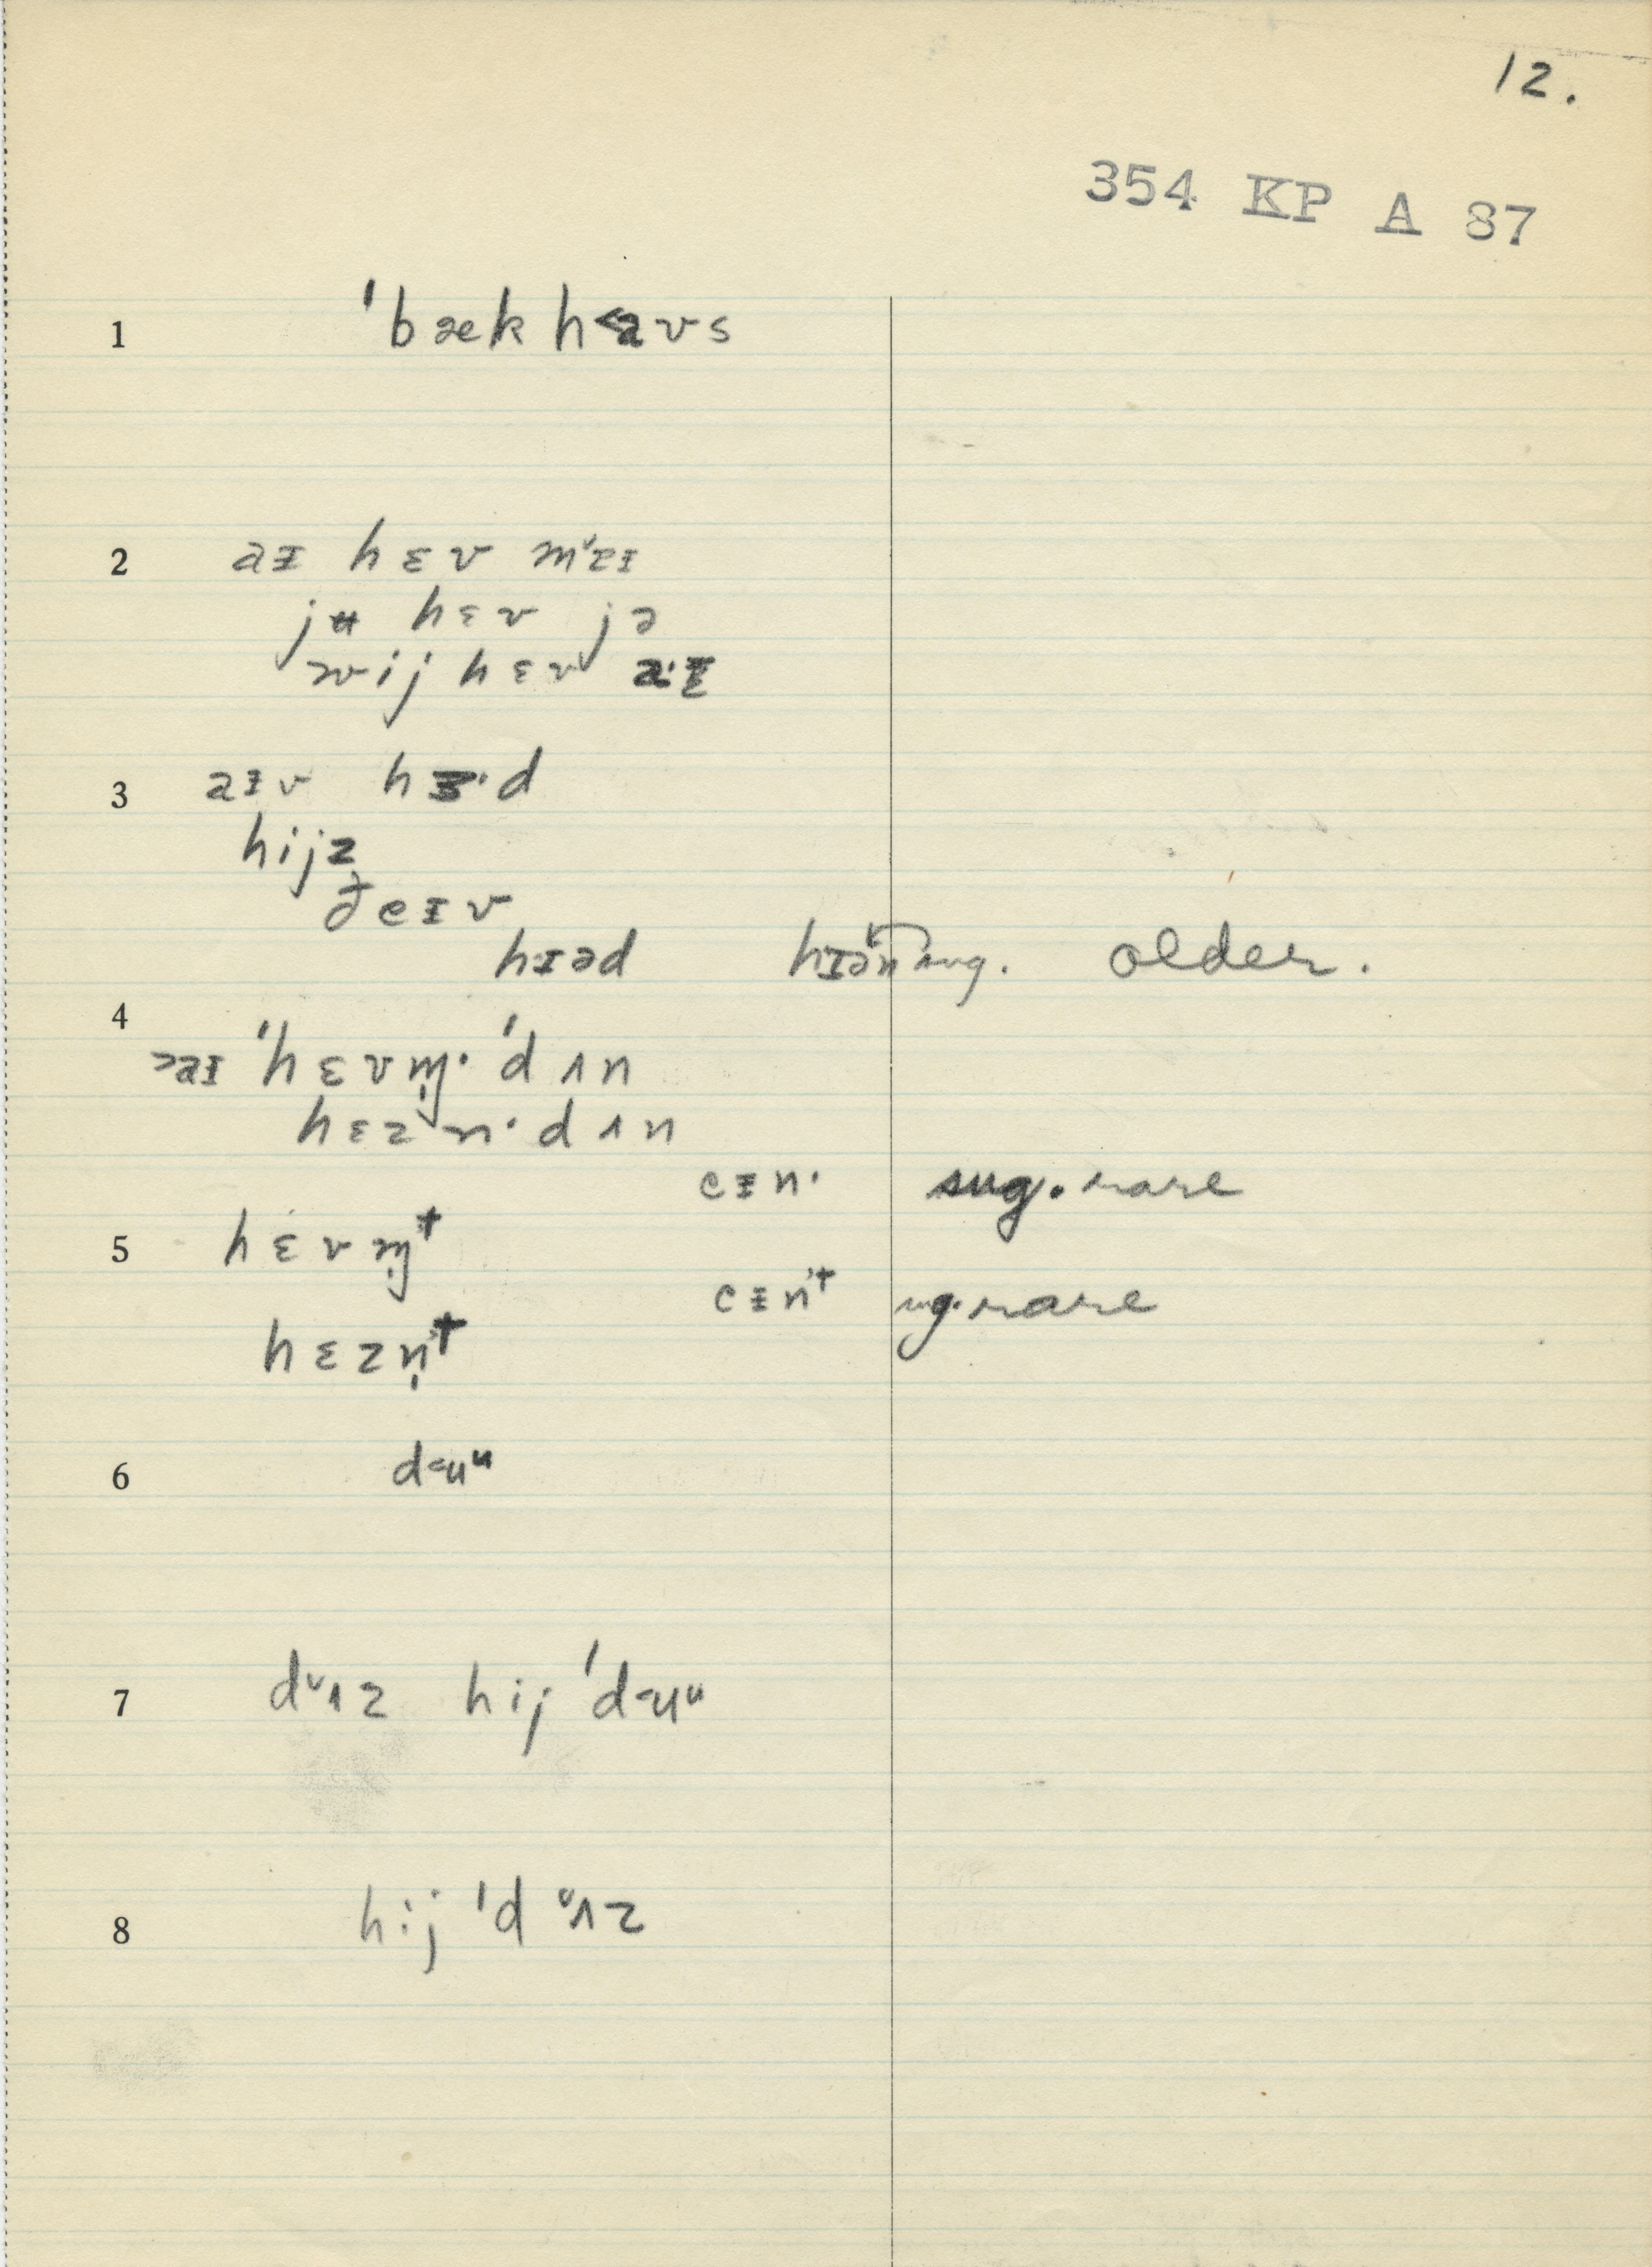 12.
354 KP A 87
1 ˈbækha˂ʊs
2 aɪ hɛv mˈɛɪ
jʉ hɛv jə
wij hɛv
3 aɪv hɜ·d
hijz
ðeɪv
hɪəd hɪən sug. older.
4 >aɪ ˈhɛvm̩· ˈdʌn
hɛzn· dʌn
eɪn· sug. rare
5 hɛvm̩t
eɪnt sug. rare
hɛzn̩t
6 d˂uᵘ
7 dᵛʌz hij ˈd˂uᵘ
8 hij ˈdᵛʌz